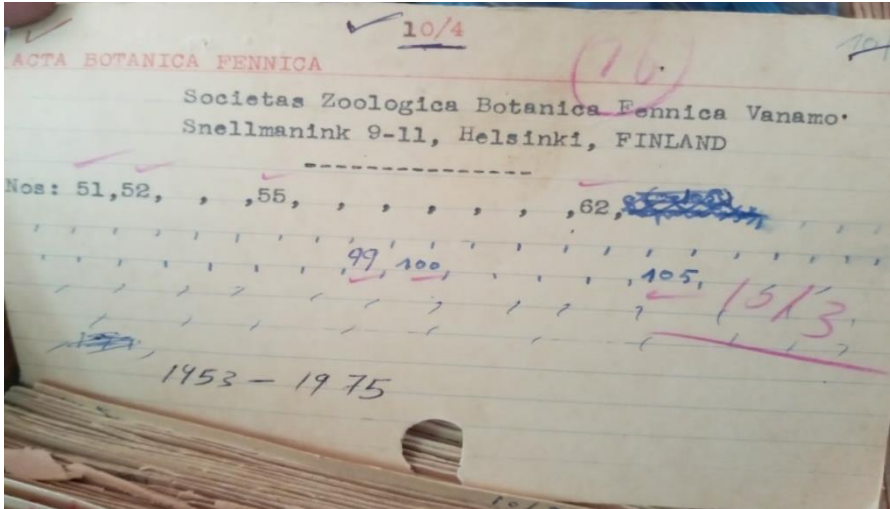 10/4
ACTA BOTANICA FENNICA
Societas Zoologica Botanica Fennica Vanamo.
Snellmanink 9-11, Helsinki, FINLAND
---------------
Nos: 51,52, , ,55, , , , , , , ,62,
, , , , , , , , , , , , , , , , , , , ,
, , , , , , , 99, 100, , , , , 105,
1513
1953 – 1975